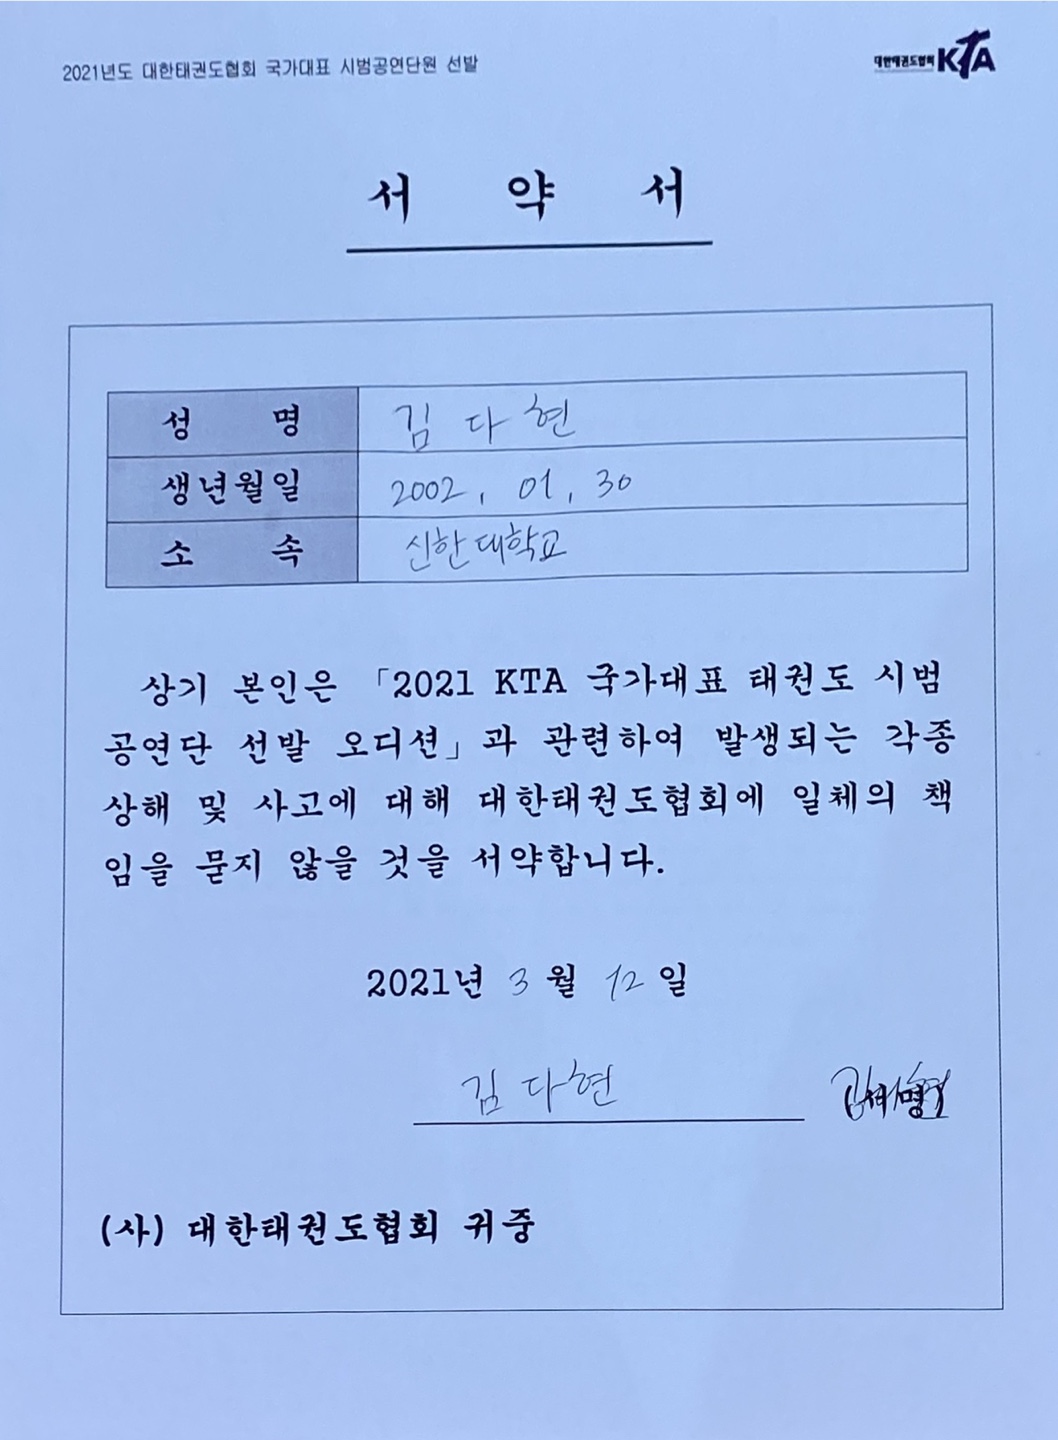 2021년도 대한태권도협회 국가대표 시범공연단원 선발
대한태권도협회 KTA
서 약 서
성 명 김다현
생년월일 2002. 01. 30
소 속 신한대학교
상기 본인은 「2021 KTA 국가대표 태권도 시범
공연단 선발 오디션」과 관련하여 발생되는 각종
상해 및 사고에 대해 대한태권도협회에 일체의 책
임을 묻지 않을 것을 서약합니다.
2021년 3월 12일
김다현 (서명)
(사) 대한태권도협회 귀중